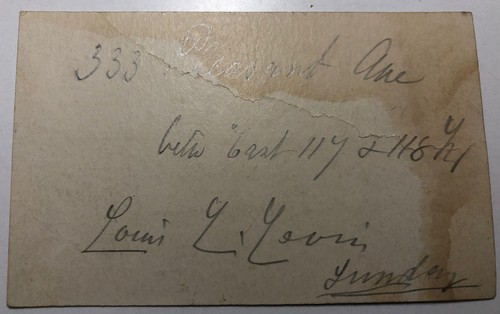 333 Pleasant Ave
betw East 117 & 118th
Louis L. Levin
Sunday